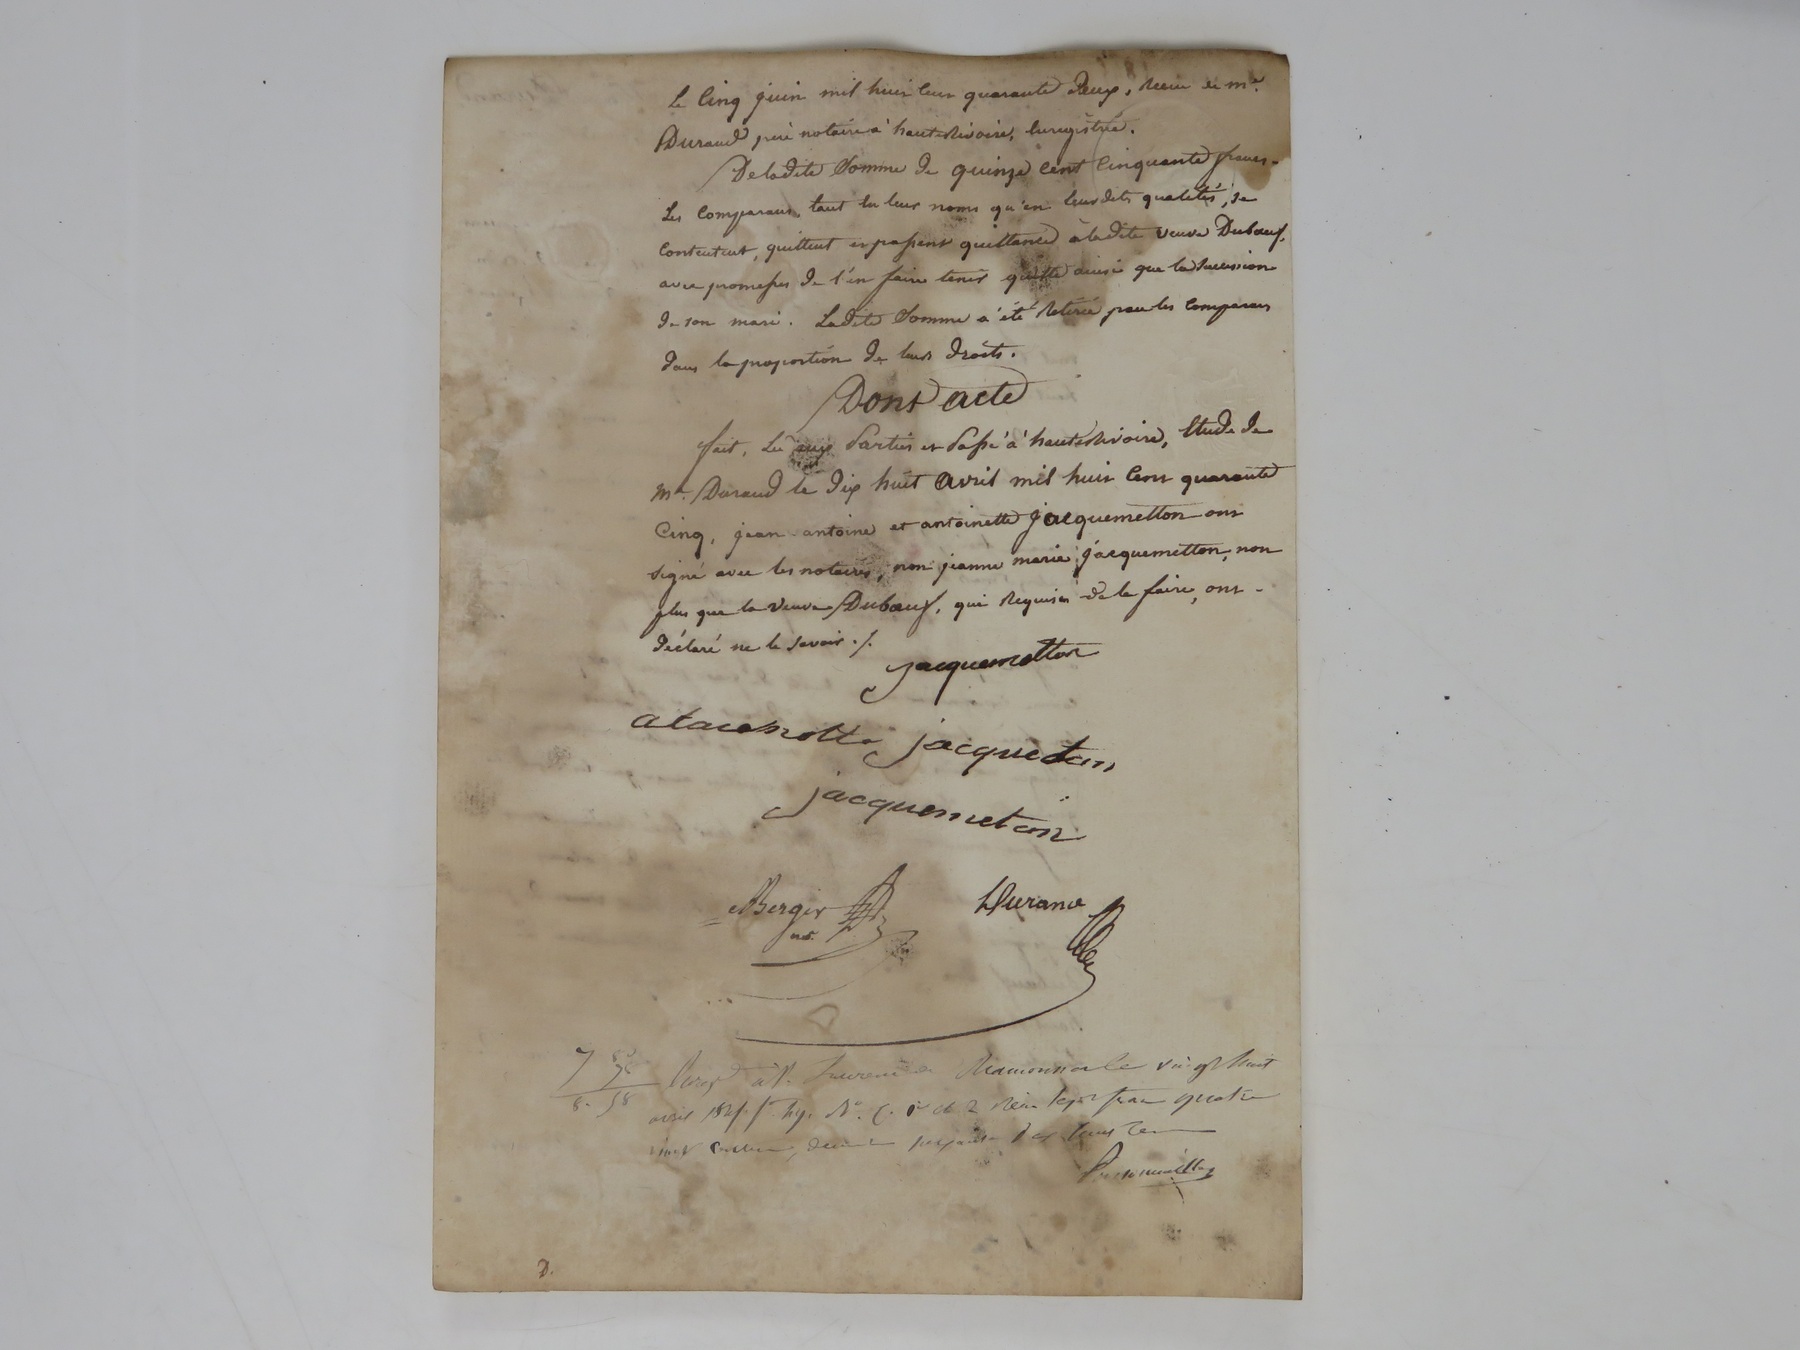 Le Cinq juin mil huit cent quarante deux, Reçu de Me
Durand père notaire à haute Rivoire, Enregistrée.
De ladite Somme de quinze cent Cinquante francs -
Les Comparans, tant en leurs noms qu'en leursdits qualités, se
contentent, quittent et passent quittance à ladite veuve Dubœuf,
avec promesses de l'en faire tenir quitte ainsi que la Succession
de son mari. Ladite Somme a été Retirée par les Comparans
dans la proportion de leurs droits.
Dont acte
fait, Lu aux Parties et Passé à haute Rivoire, Etude de
Me. Durand le dix huit avril mil huit Cent quarante
Cinq, jean antoine et antoinette jacquemetton ont
signé avec les notaires, non jeanne marie jacquemetton, non
plus que la veuve Dubœuf, qui Requises de le faire, ont -
déclaré ne le savoir ./.
jacquemetton
jacquetan
jacquemeton
Berger
not.
Durand
7 78
8 - 58 à St. Laurent de Chamousset le vingt huit
avril franc quatre
vingt
D.